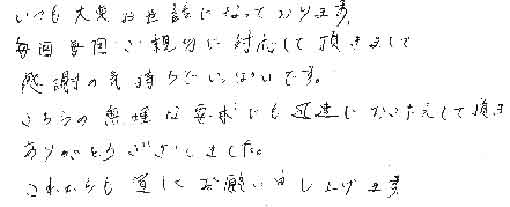 いつも大変お世話になっております。
毎回毎回ご親切に対応して頂きまして
感謝の気持ちでいっぱいです。
こちらの無理な要求にも迅速にお応えして頂き
ありがとうございました。
これからも宜しくお願い申し上げます